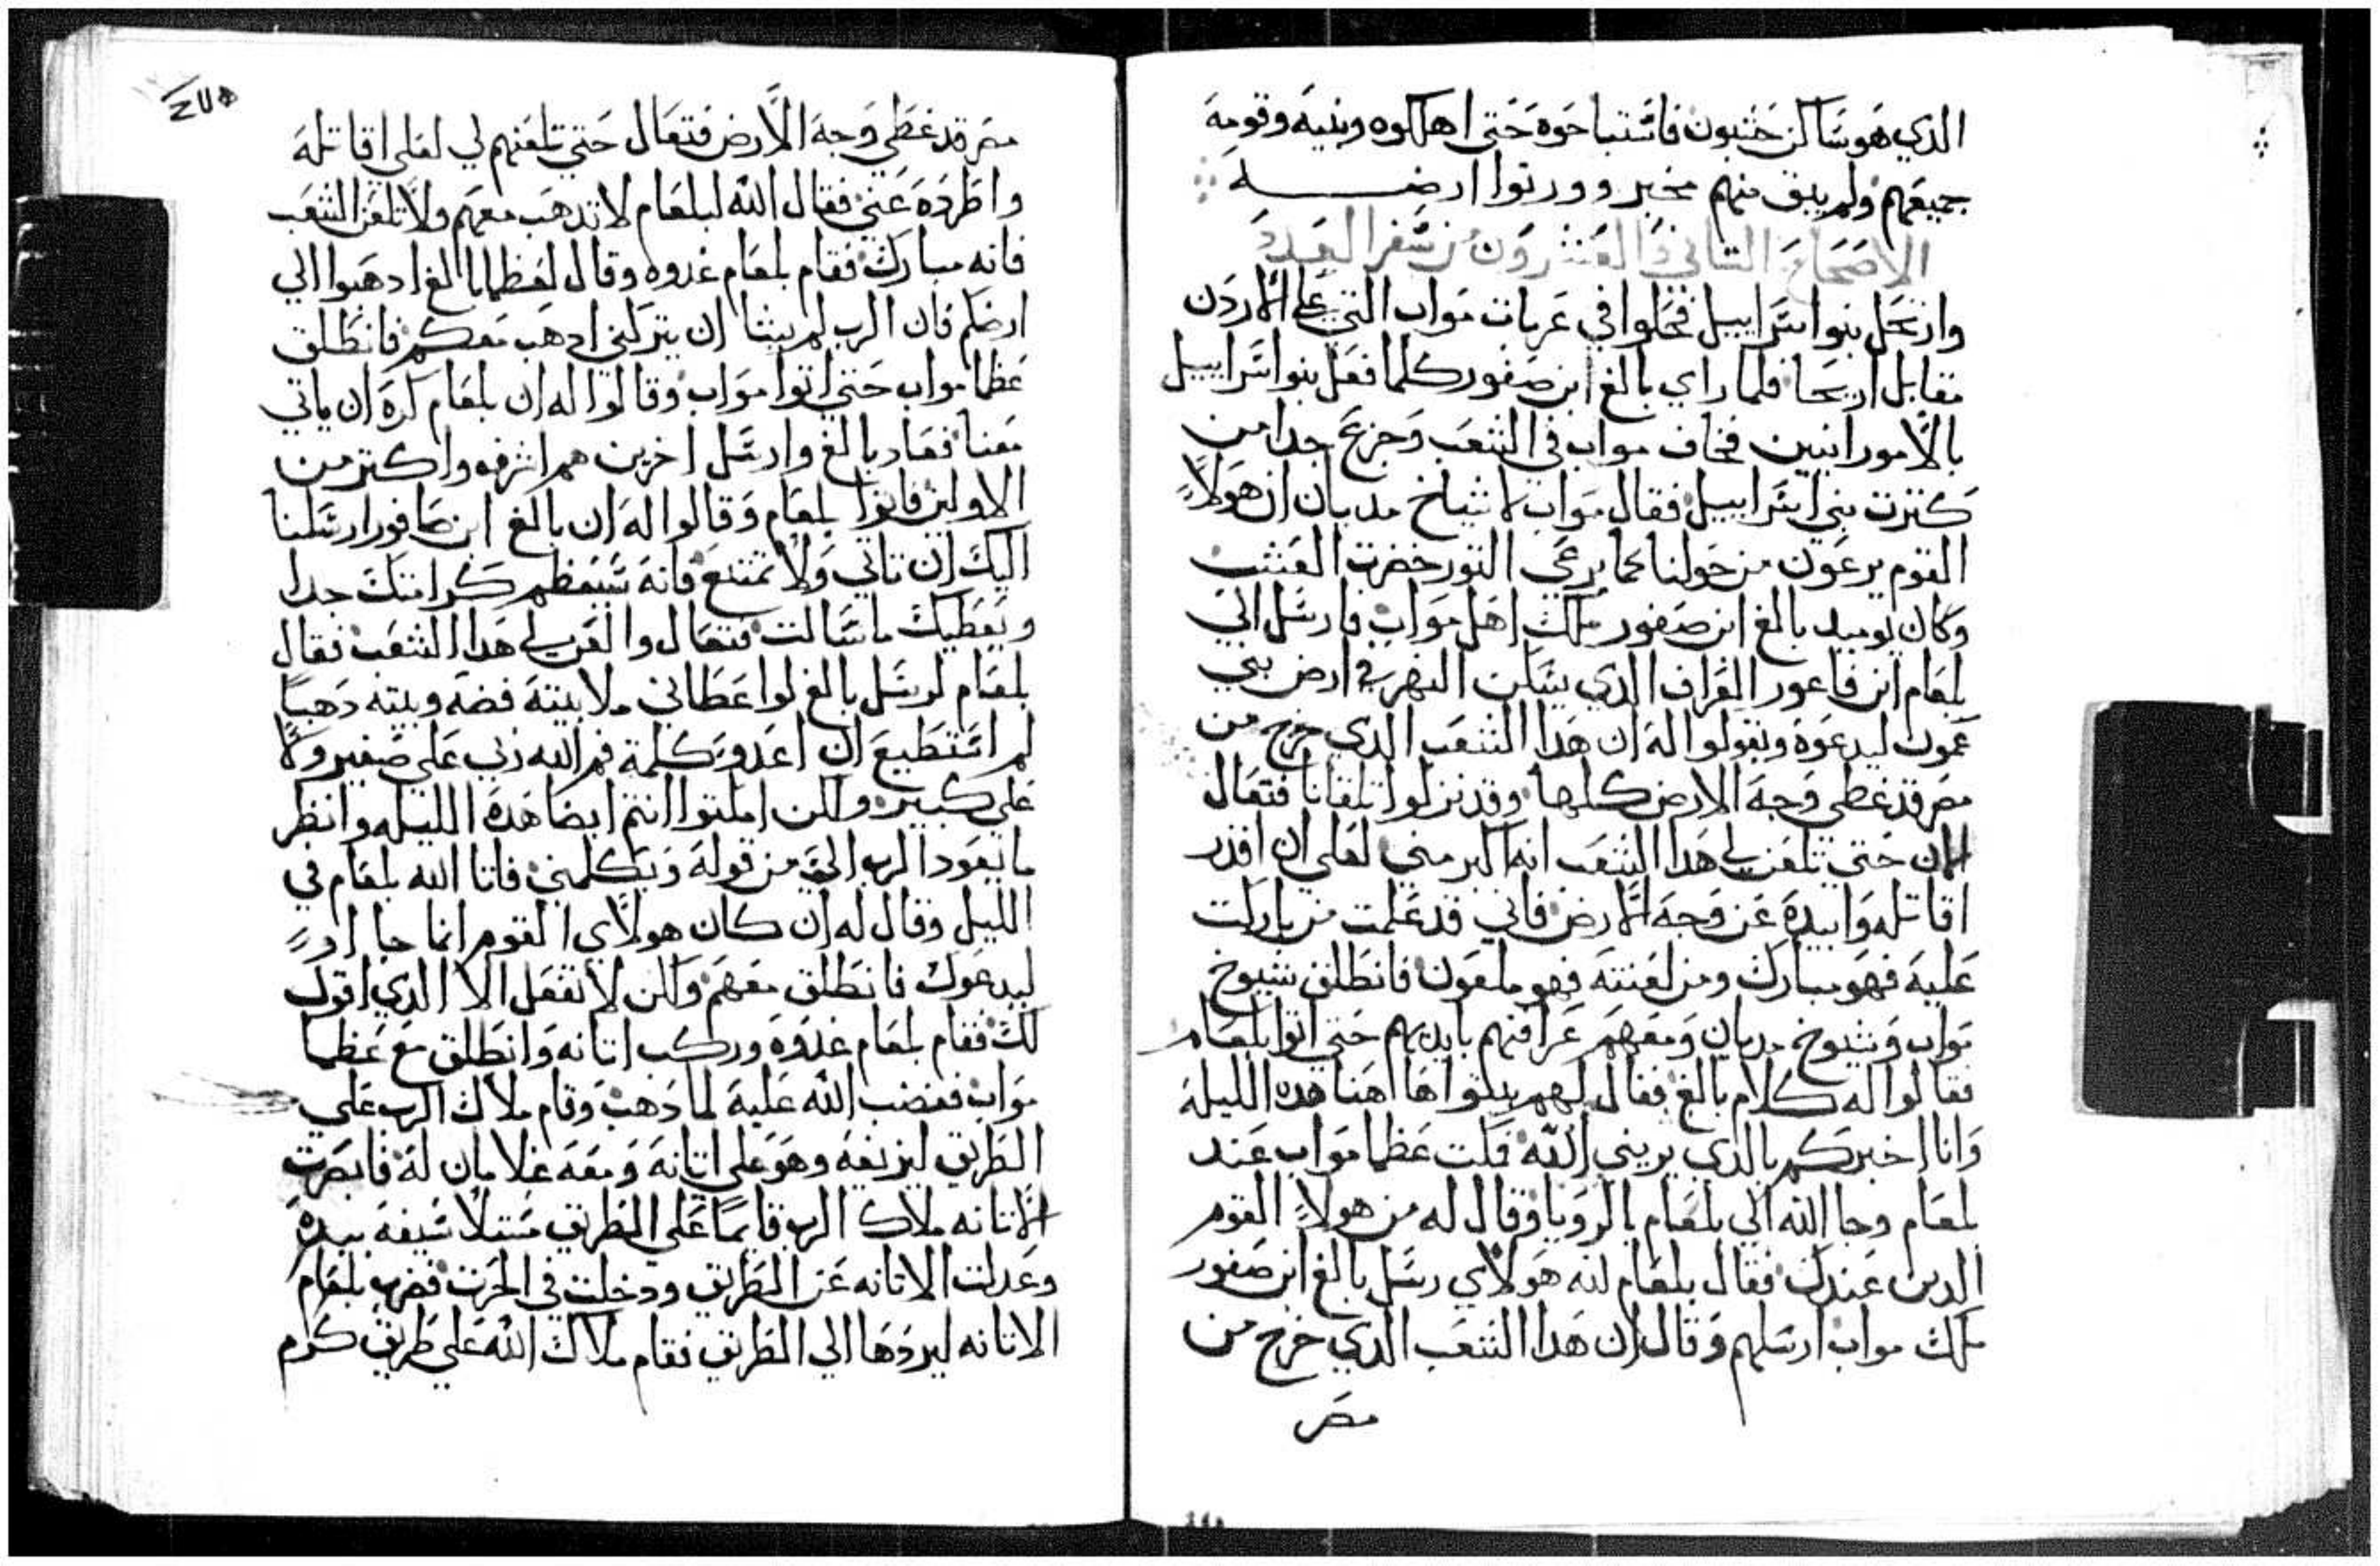 الدي هو ساكن حشبون فاستباحوه حتى اهلكوه وبنيه وقومه
جميعهم ولم يبق منهم مخبر وورثوا ارضه
الاصحاح التاني والعشرون من سفر العدد
وارتحل بنوا اسراييل فحلوا في عربات مواب التي علي الاردن
مقابل اريحا فلما راي بالغ ابن صفور كلما فعل بنوا اسراييل
بالامورانيين فخاف مواب في الشعب وجزع جدا من
كترت بني اسراييل فقال مواب لاشياخ مديان ان هولاء
القوم يرعون من حولنا كما يرعي التور خضرت العشب
وكان يوميد بالغ ابن صفور ملك اهل مواب فارسل الي
بلعام ابن فاعور العراف الدي يسكن النهر في ارض بني
عمون ليدعوه ويقولوا له ان هدا الشعب الدي خرج من
مصر قد غطي وجه الارض كلها وقد نزلوا تلقانا فتعال
الان حتى تلعن لي هدا الشعب انه اكبر مني لعلي ان اقدر
اقاتله وابيده عن وجه الارض فاني قد علمت من باركت
عليه فهو مبارك ومن لعنته فهو ملعون فانطلق شيوخ
مواب وشيوخ مديان ومعهم عرافتهم بايديهم حتى اتوا بلعام
فقالوا له كلام بالغ فقال لهم بيتوا هاهنا هده الليله
وانا اخبركم بالدي يريني الله فكت عظما مواب عند
بلعام وجا الله الي بلعام بالرويا وقال له من هولاء القوم
الدين عندك فقال بلعام لله هولاي رسل بالغ ابن صفور
ملك مواب ارسلهم وقال ان هدا الشعب الدي خرج من
مصر
مصر قد غطي وجه الارض فتعال حتى تلعنهم لي لعلي اقاتله
واطرده عني فقال الله لبلعام لا تدهب معهم ولا تلعن الشعب
فانه مبارك فقام بلعام غدوه وقال لعظما بالغ ادهبوا الي
ارضكم فان الرب لم يشا ان يتركني ادهب معكم فانطلق
عظما مواب حتي اتوا مواب وقالوا له ان بلعام كره ان ياتي
معنا فعاد بالغ وارسل اخرين هم اشرفه واكتر من
الاولين فاتوا بلعام وقالوا له ان بالغ ابن صافور ارسلنا
اليك ان تاتي ولا تمتنع فانه سيعظم كرامتك جدا
ويعطيك ما سالت فتعال والعن لي هدا الشعب فقال
بلعام لرسل بالغ لو اعطاني ملا بيته فضه وبيته دهبا
لم استطيع ان اعدو كلمة فم الله ربي علي صغير ولا
علي كبير ولكن امكتوا انتم ايضا هده الليله وانظر
ما يعود الرب الي من قوله ويكلمني فاتا الله بلعام في
الليل وقال له ان كان هولاي القوم انما جاا
ليدعوك فانطلق معهم ولكن لا تفعل الا الدي اقول
لك فقام بلعام غدوه وركب اتانه وانطلق مع عظما
مواب فغضب الله عليه لما دهب وقام ملاك الرب علي
الطريق ليزيغه وهو علي اتانه ومعه غلامان له فابصرت
الاتانه ملاك الرب قايما علي الطريق مستلا سيفه بيده
وعدلت الاتانه عن الطريق ودخلت في الحرت فضرب بلعام
الاتانه ليردها الي الطريق فقام ملاك الله علي طريق كرم